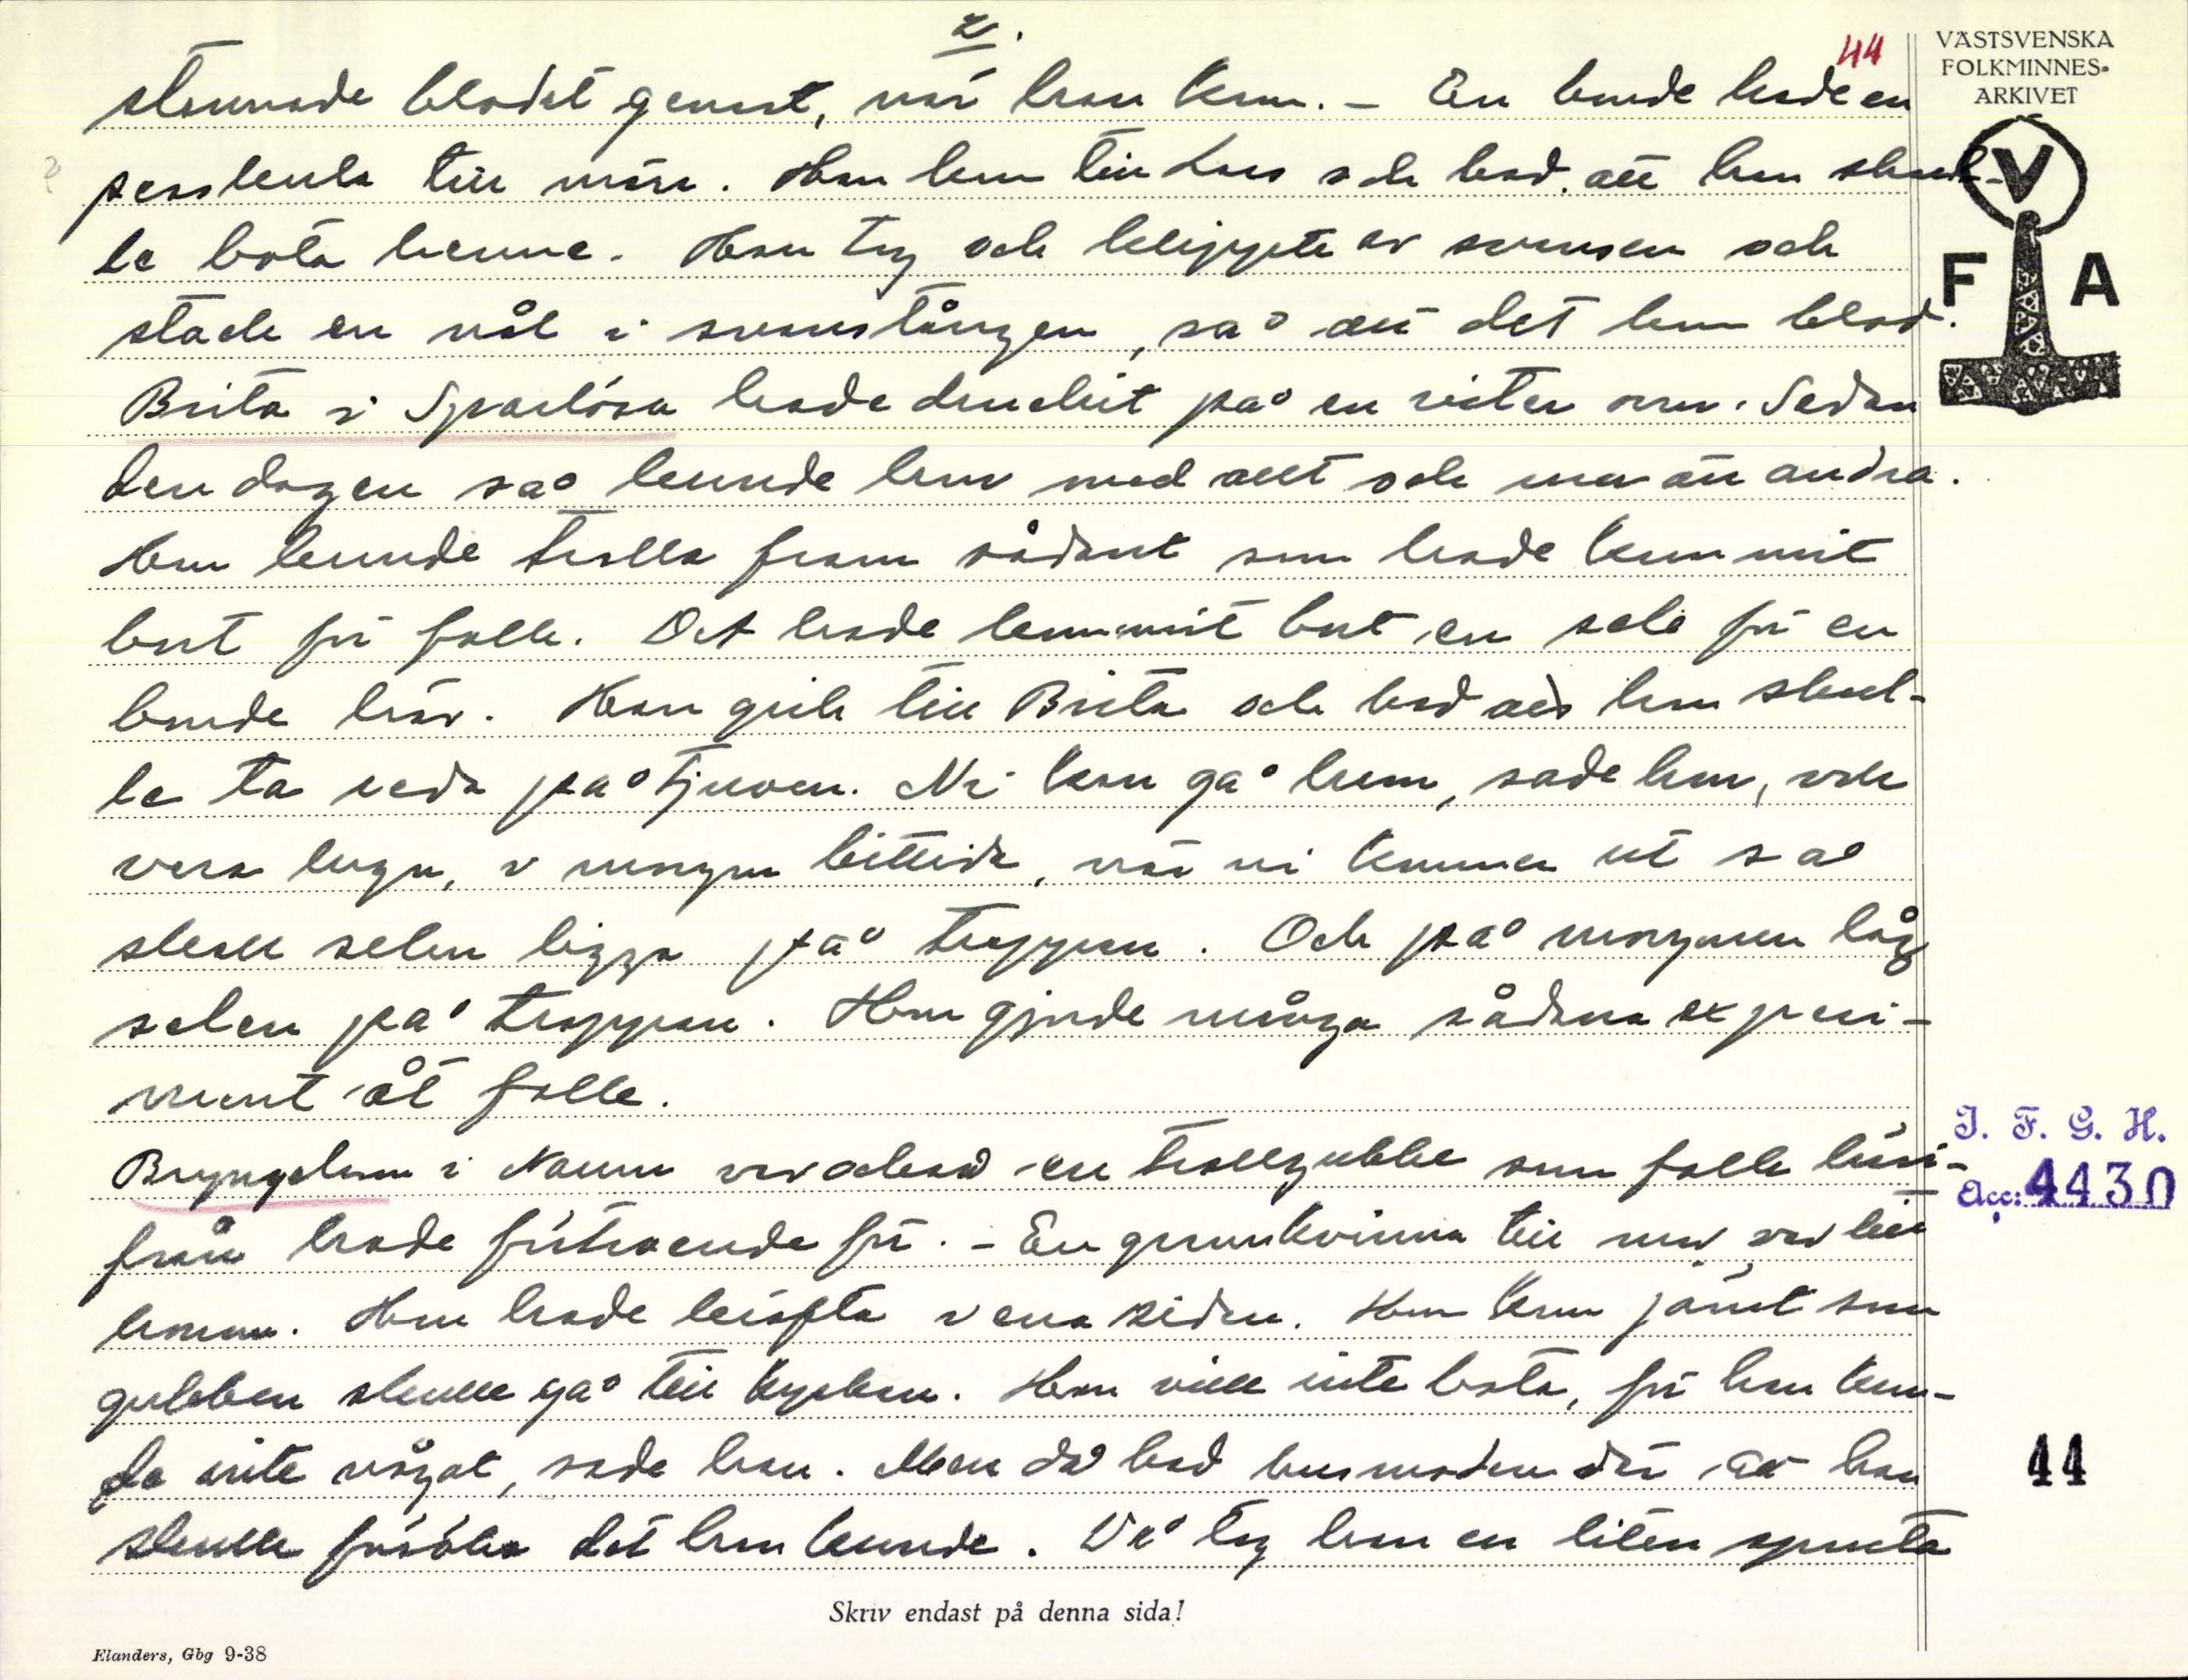 2.
44
VÄSTSVENSKA
FOLKMINNES-
ARKIVET
V
F A
stannade blodet genast, när han kom. - En bonde hade en
till märr. Han kom till Lars och bad att han skul-
le bota henne. Han tog och klippte av svansen och
stack en nål i svanstången, så att det kom blod.
Brita i Sparlösa hade druckit på en viter orm. Sedan
den dagen så kunde hon med allt och mer än andra.
Hon kunde trolla fram sådant som hade kommit
bort för folk. Det hade kommit bort en sele för en
bonde här. Han gick till Brita och bad att hon skul-
le ta reda på tjuven. Ni kan gå hem, sade hon, och
vara lugn, i morgon bittida, när ni kommer ut så
skall selen ligga på trappan. Och på morgonen låg
selen på trappan. Hon gjorde många sådana experi-
ment åt folk.
Bryngelsson i Naum var också en trollgubbe som folk häri-
från hade förtroende för. - En grannkvinna till mor var till
honom. Hon hade i ena sidan. Hon kom jämt som
gubben skulle gå till kyrkan. Han ville inte bota, för han kun-
de inte något, sade han. Men då bad husmodern där att han
skulle försöka det han kunde. Då tog han en liten spruta
I. F. G. H.
Acc: 4430
44
Skriv endast på denna sida!
Elanders, Gbg 9-38